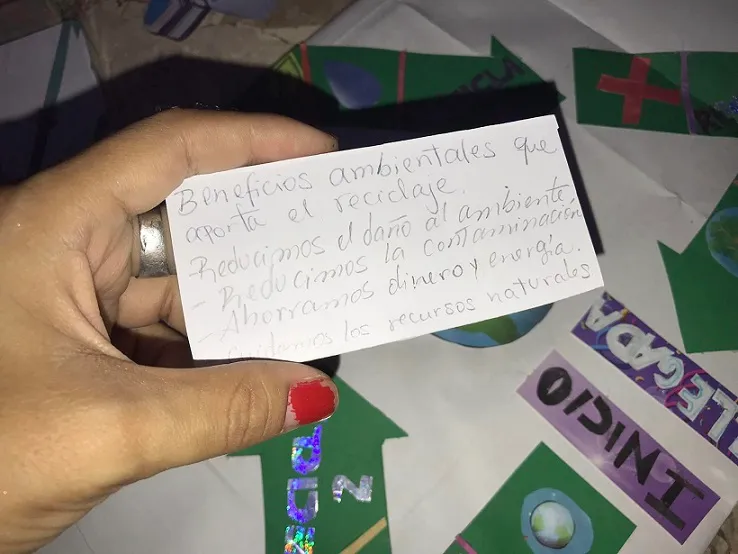 Beneficios ambientales que
aporta el reciclaje.
- Reducimos el daño al ambiente
- Reducimos la contaminación
- Ahorramos dinero y energía.
cuidamos los recursos naturales
LLEGADA
INICIO